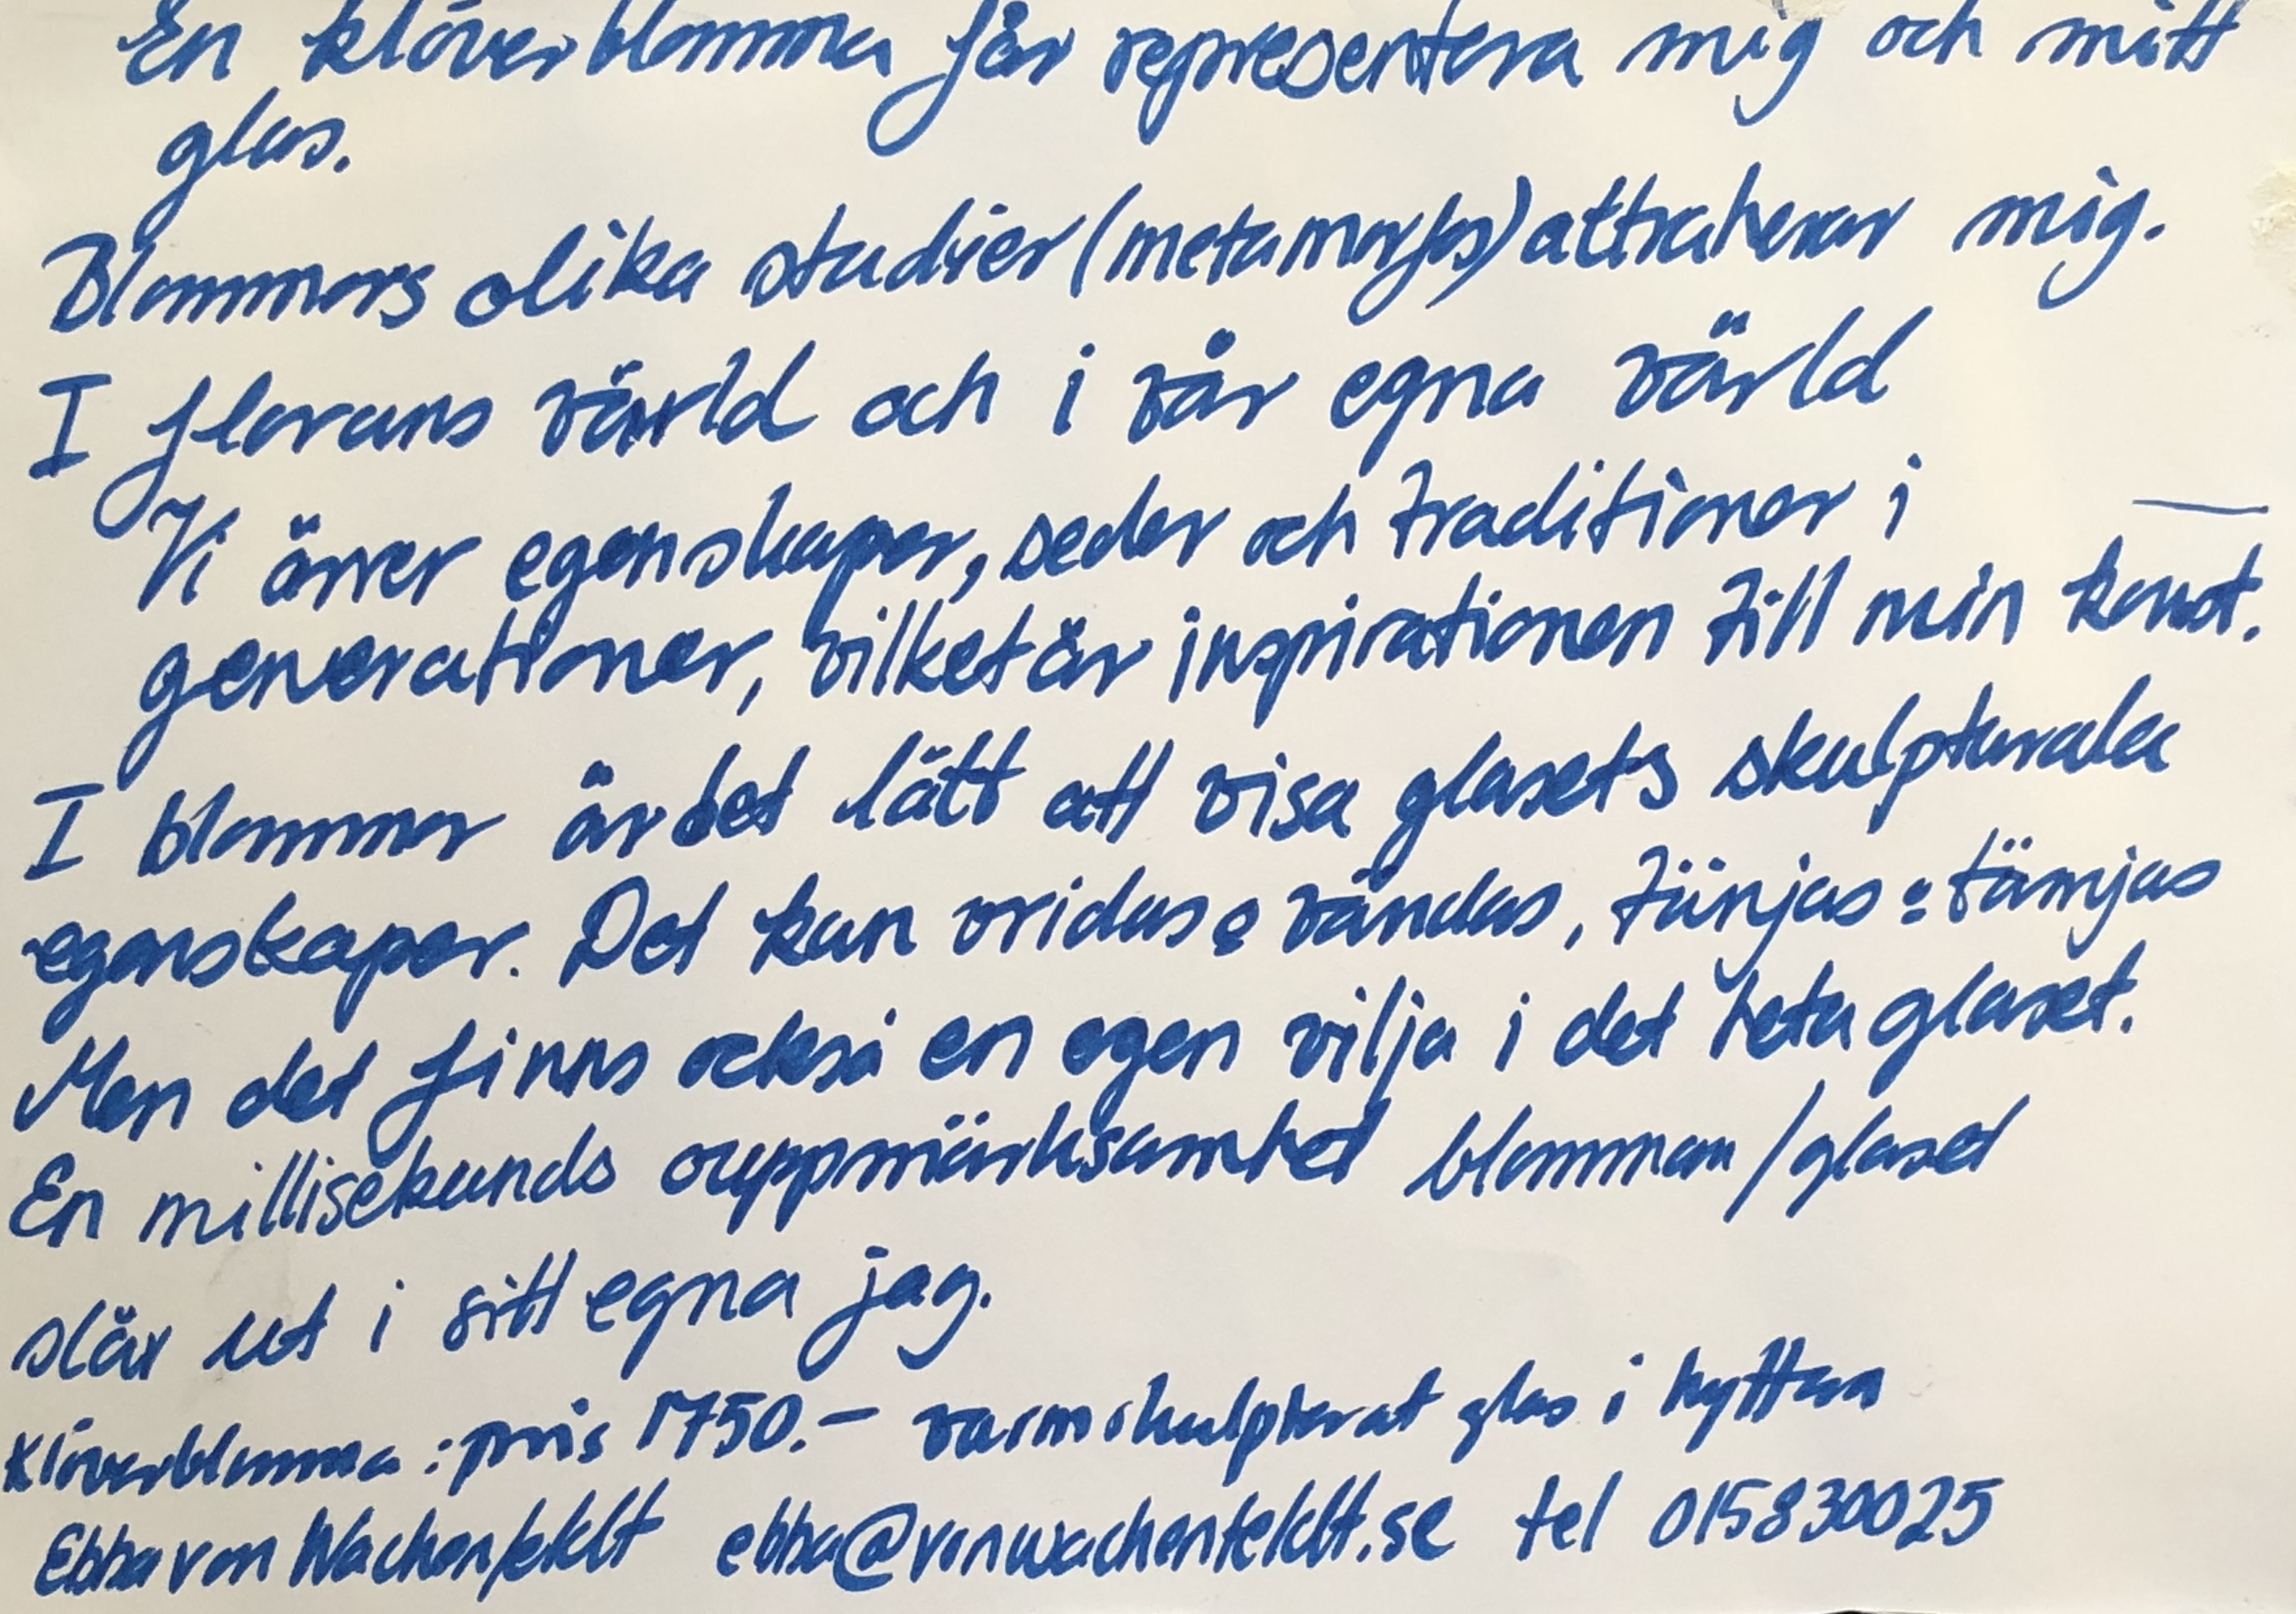 En klöverblomma får representera mig och mitt
glas.
Blommors olika stadier (metamorfos) attraherar mig.
I florans värld och i vår egna värld
Vi ärver egenskaper, seder och traditioner i
generationer, vilket är inspirationen till min konst.
I blommor är det lätt att visa glasets skulpturala
egenskaper. Det kan vridas o vändas, tänjas o tämjas
Men det finns också en egen vilja i det heta glaset.
En millisekunds ouppmärksamhet blomman/glaset
slår ut i sitt egna jag.
Klöverblomma : pris 1750.- varmskulpterat glas i hyttan
Ebba von Wachenfeldt ebba@vonwachenfeldt.se tel 015830025